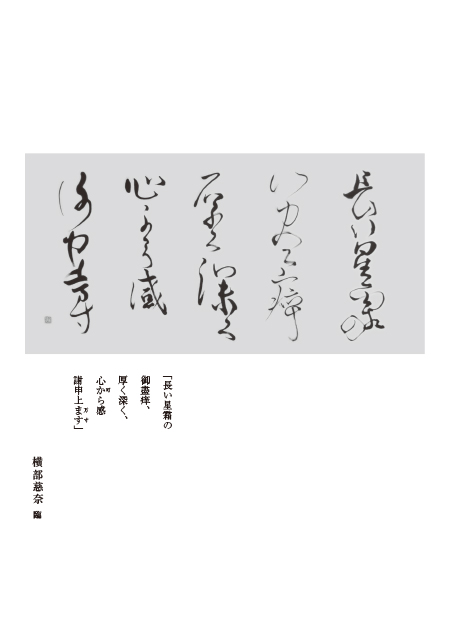 長い星霜の
御盡瘁
厚く深く
心可ら感
謝申上万寸
「長い星霜の
御盡瘁、
厚く深く、
心から感
謝申上ます」
横部慈奈 臨